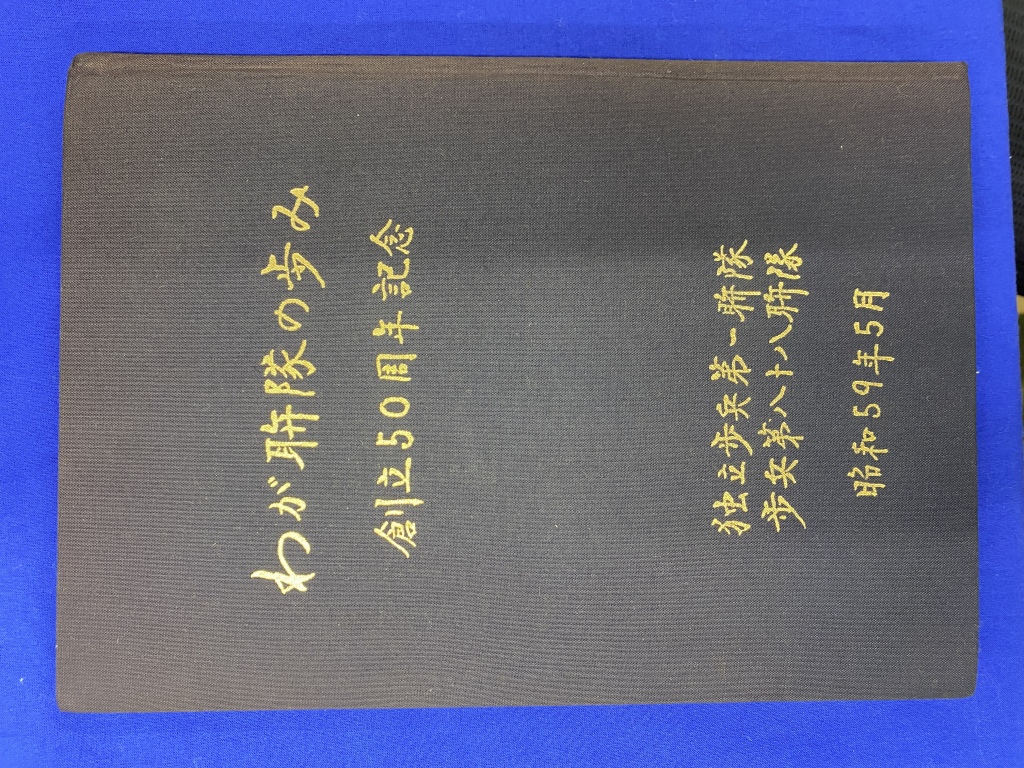 わが聯隊の歩み
創立50周年記念
独立歩兵第一聯隊
歩兵第八十八聯隊
昭和59年5月